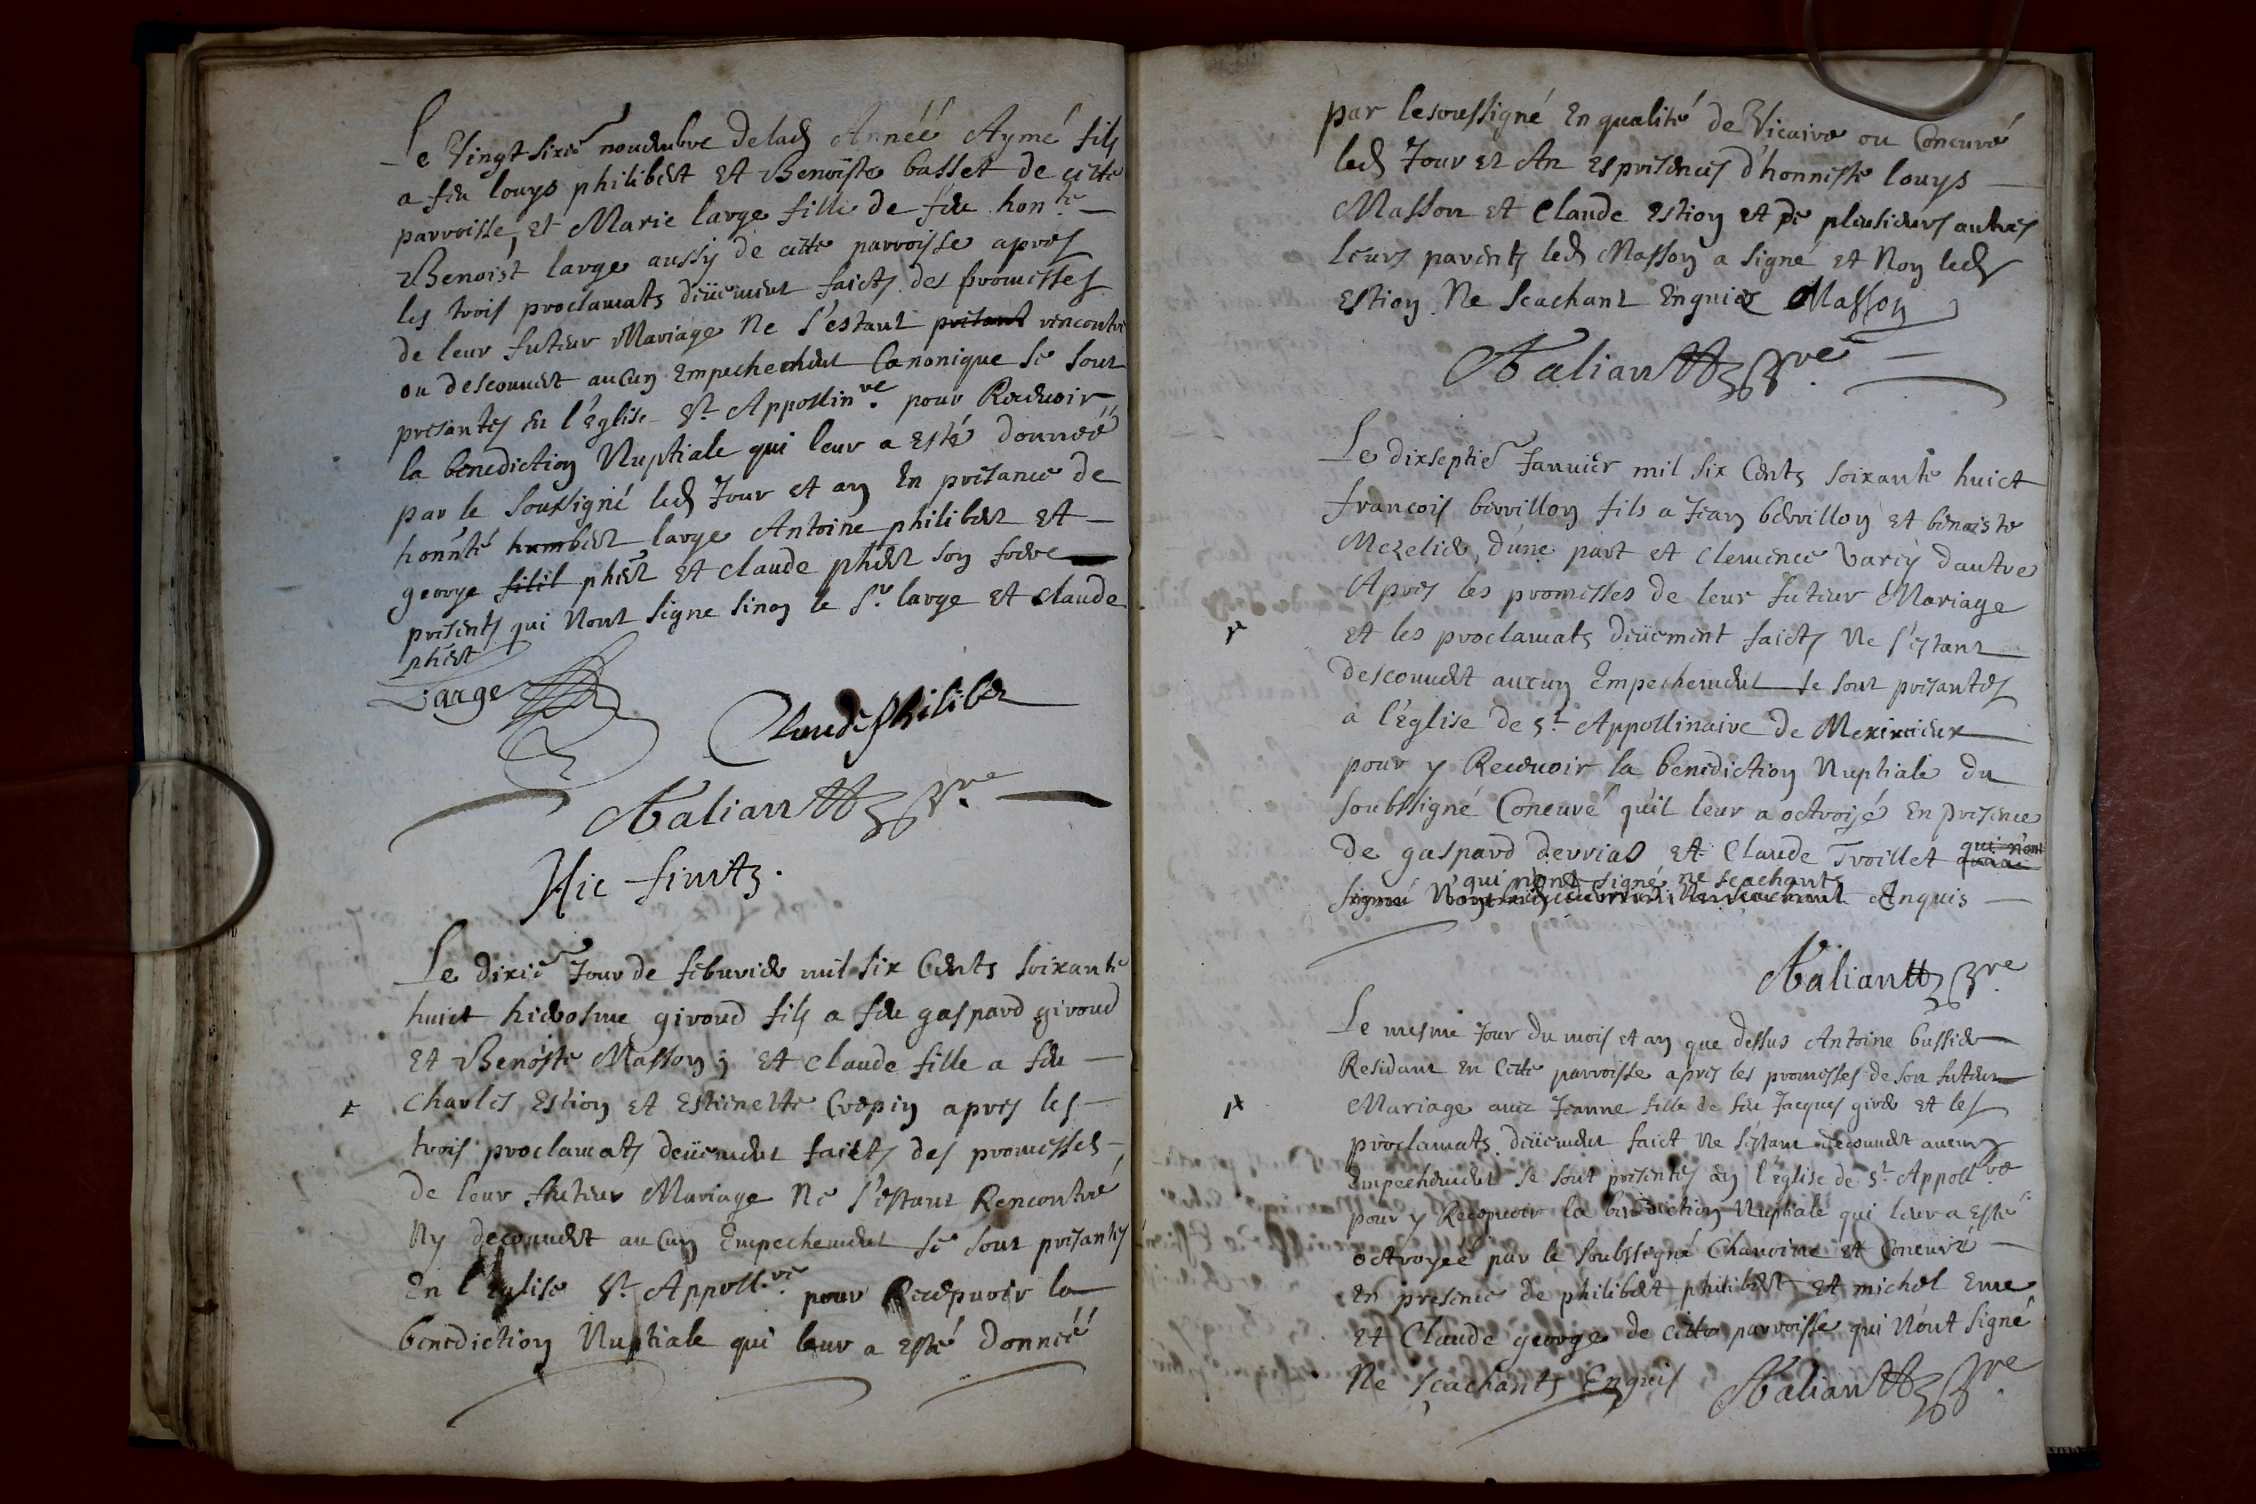 Le Vingt sixie nouembre de lad Année Aymé fils
a feu louys philibert et Benoiste basset de cette
parroisse, et Marie large fille de feu honte
Benoist large aussy de cette parroisse apres
les trois proclamats deüement faicts des promesses
de leur futeur Mariage Ne s'estant presant rencontré
ou descouuert aucun Empechement Canonique se sont
presantes en l'eglise St Appollinre pour Receuoir
la benediction Nuptiale qui leur a esté donnéé
par le soussigné led Jour et an En presance de
honnte humbert large Antoine philibert et
george filil phibt et claude phibt son frere
presents qui n'ont signe sinon le sr large et claude
phibt
Large
Claude philiber
Taliantt pbre
Hic finits.
Le dixie Jour de feburier mil six Cents soixante
huict hierosme giroud fils a feu gaspard giroud
et Benoste Masson; et claude fille a feu
charles Estion et Estienette Crepin apres les
trois proclamats deüement faicts des promesses
de leur futeur Mariage Ne s'estant Rencontré
Ny decouuert aucun Empechement se sont presantes
En l'Eglise St Appollre pour Recepuoir la
benediction Nuptiale qui leur a esté donnéé
par le soussigné En qualité de Vicaire ou Concuré
led Jour et An Es presences d'honneste louys
Masson et Claude Estion et de plusieurs autres
leurs parents led Masson a signé et Non led
Estion Ne scachant Enquis Masson
Taliantt pbre
Le dixseptie Januier mil six Cents soixante huict
francois berrillon fils a Jean berrillon et benoiste
Mezelier, d'une part et Clemence Varey d'autre
Apres les promesses de leur futeur Mariage
et les proclamats deüement faicts Ne s'estant
descouuert aucun Empechement se sont presantes
a l'eglise de St Appollinaire de Meximieux
pour y Receuoir la benediction Nuptiale du
soubssigné Concuré qu'il leur a octroijé En presence
de gaspard derrias et Claude Troillet qui n'ont
qui n'ont signé ne scachants
signé Enquis
Taliantt pbre
Le mesme Jour du mois et an que dessus Antoine bussier
Residant En Cette parroisse apres les promesses de son futeur
Mariage auec Jeanne fille de feu Jacques girer et les
proclamats deüement faict Ne s'estant decouuert aucun
Empechement se sont presentes en l'Eglise de St Appollre
pour y Recepuoir la benediction Nuptiale qui leur a esté
octroyéé par le soubssegné Chanoine et Concuré
En presence de philibert philibert et michel Eme
et Claude george de cette parroisse qui N'ont signé
Ne scachants Enquis Taliantt pbre